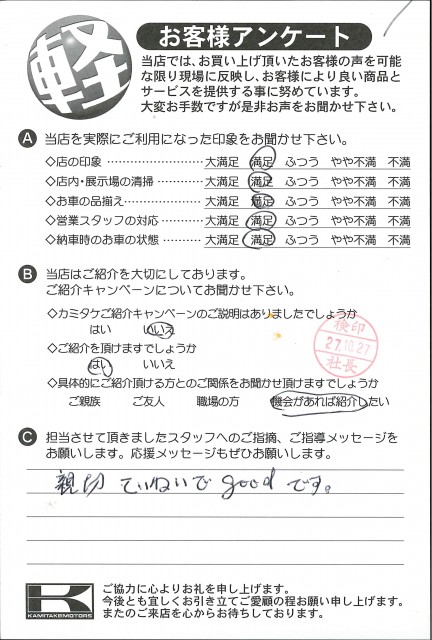 軽
お客様アンケート
当店では、お買い上げ頂いたお客様の声を可能
な限り現場に反映し、お客様により良い商品と
サービスを提供する事に努めています。
大変お手数ですが是非お声をお聞かせ下さい。
A 当店を実際にご利用になった印象をお聞かせ下さい。
◇店の印象 ………………… 大満足 満足 ふつう やや不満 不満
◇店内・展示場の清掃 ………… 大満足 満足 ふつう やや不満 不満
◇お車の品揃え……………… 大満足 満足 ふつう やや不満 不満
◇営業スタッフの対応 ………… 大満足 満足 ふつう やや不満 不満
◇納車時のお車の状態 ………… 大満足 満足 ふつう やや不満 不満
B 当店はご紹介を大切にしております。
ご紹介キャンペーンについてお聞かせ下さい。
◇カミタケご紹介キャンペーンのご説明はありましたでしょうか
はい いいえ
◇ご紹介を頂けますでしょうか
はい いいえ
検印
27.10.27
社長
◇具体的にご紹介頂ける方とのご関係をお聞かせ頂けますでしょうか
ご親族 ご友人 職場の方 機会があれば紹介したい
C 担当させて頂きましたスタッフへのご指摘、ご指導メッセージを
お願いします。応援メッセージもぜひお願いします。
親切 ていねいで good です。
K
KAMITAKE MOTORS
ご協力に心よりお礼を申し上げます。
今後とも宜しくお引き立てご愛顧の程お願い申し上げます。
またのご来店を心からお待ちしております。